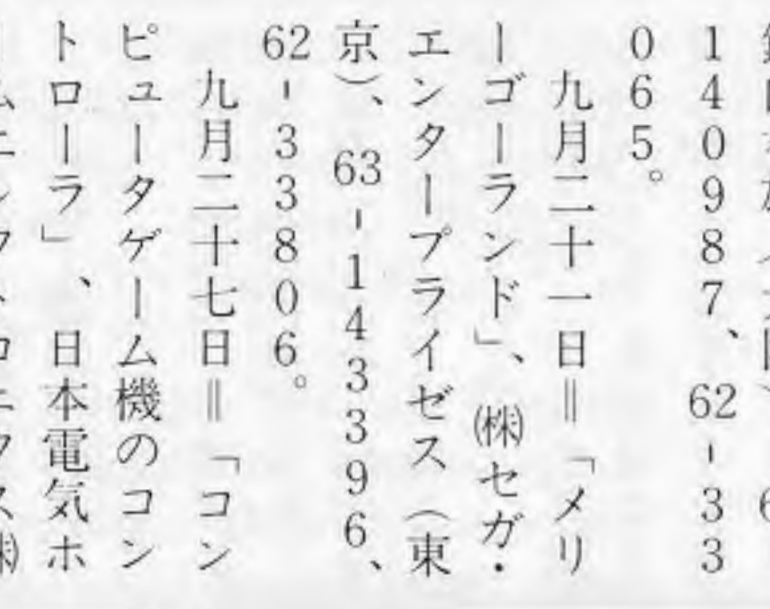 140987、62-33
065。
九月二十一日＝「メリ
ーゴーランド」、㈱セガ・
エンタープライゼス（東
京）、63-143396、
62-33806。
九月二十七日＝「コン
ピュータゲーム機のコン
トローラ」、日本電気ホ